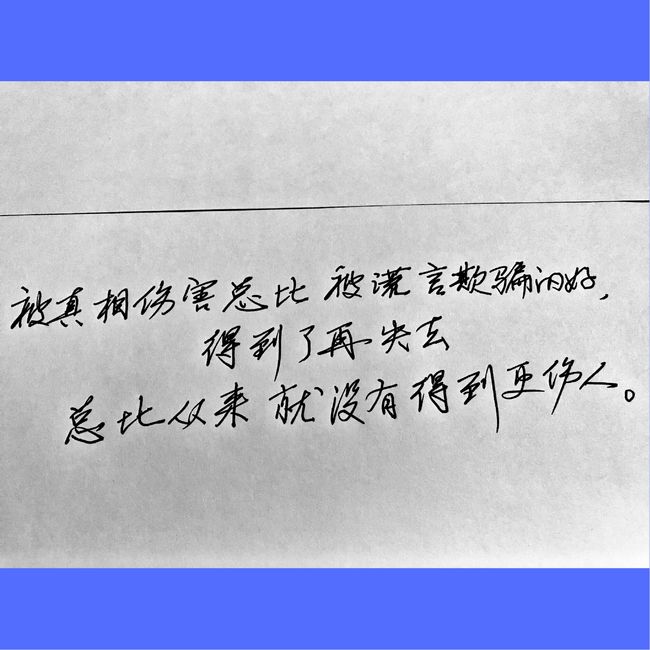 被真相伤害总比被谎言欺骗的好，
得到了再失去
总比从来就没有得到更伤人。